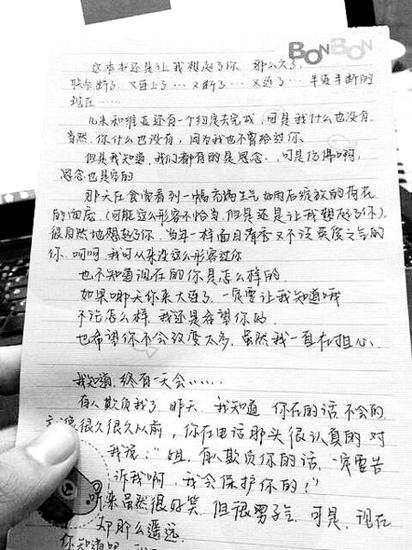 BONBON
这本书还是让我想起了你. 那么久了.
联系断了. 又连上了… 又断了… 又连了… 半连半断的
现在……
儿来和谁还有一个约定去完成, 可是我什么也没有.
当然. 你什么也没有, 因为我也不曾给过你.
但是我知道, 我们都有的是思念、、可是仿佛啊,
思念也是空的
那天在食堂看到一幅充满生气如雨后绽放的荷花
的油店. (可能这么形容不恰当. 但是还是让我想起了你).
很自然地想起了你. 当年一样面目清秀又不让英度之气的
你. 呵呵. 我可从来没这么形容过你
也不知道现在的你是怎么样的.
如果哪天你来大连了. 一定要让我知道哦
不论怎么样. 我还是希望你的.
也希望你不会改变太多. 虽然我一直在担心.
我知道. 终有一天会……
有人欺负我了. 昨天. 我知道 你在的话 不会的
很久很久以前, 你在电话那头很认真的对
我说: "姐. 有人欺负你的话, 一定要告
诉我啊, 我会保护你的!"
听来虽然很好笑. 但很男子气. 可是. 现在
却那么遥远.
你知道吧.